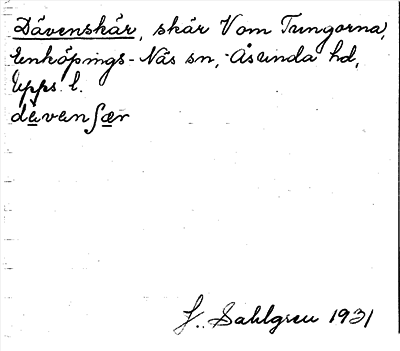 Dävenskär, skär V om Tungorna,
Enköpings-Näs sn, Åsunda hd,
Upps. l.
dävenʃær
J. Sahlgren 1931